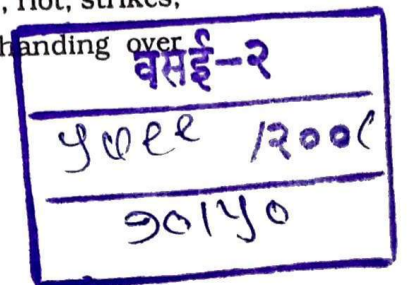 riot, strikes,
handing over
वसई-२
५७९९ /२००८
१०/५०